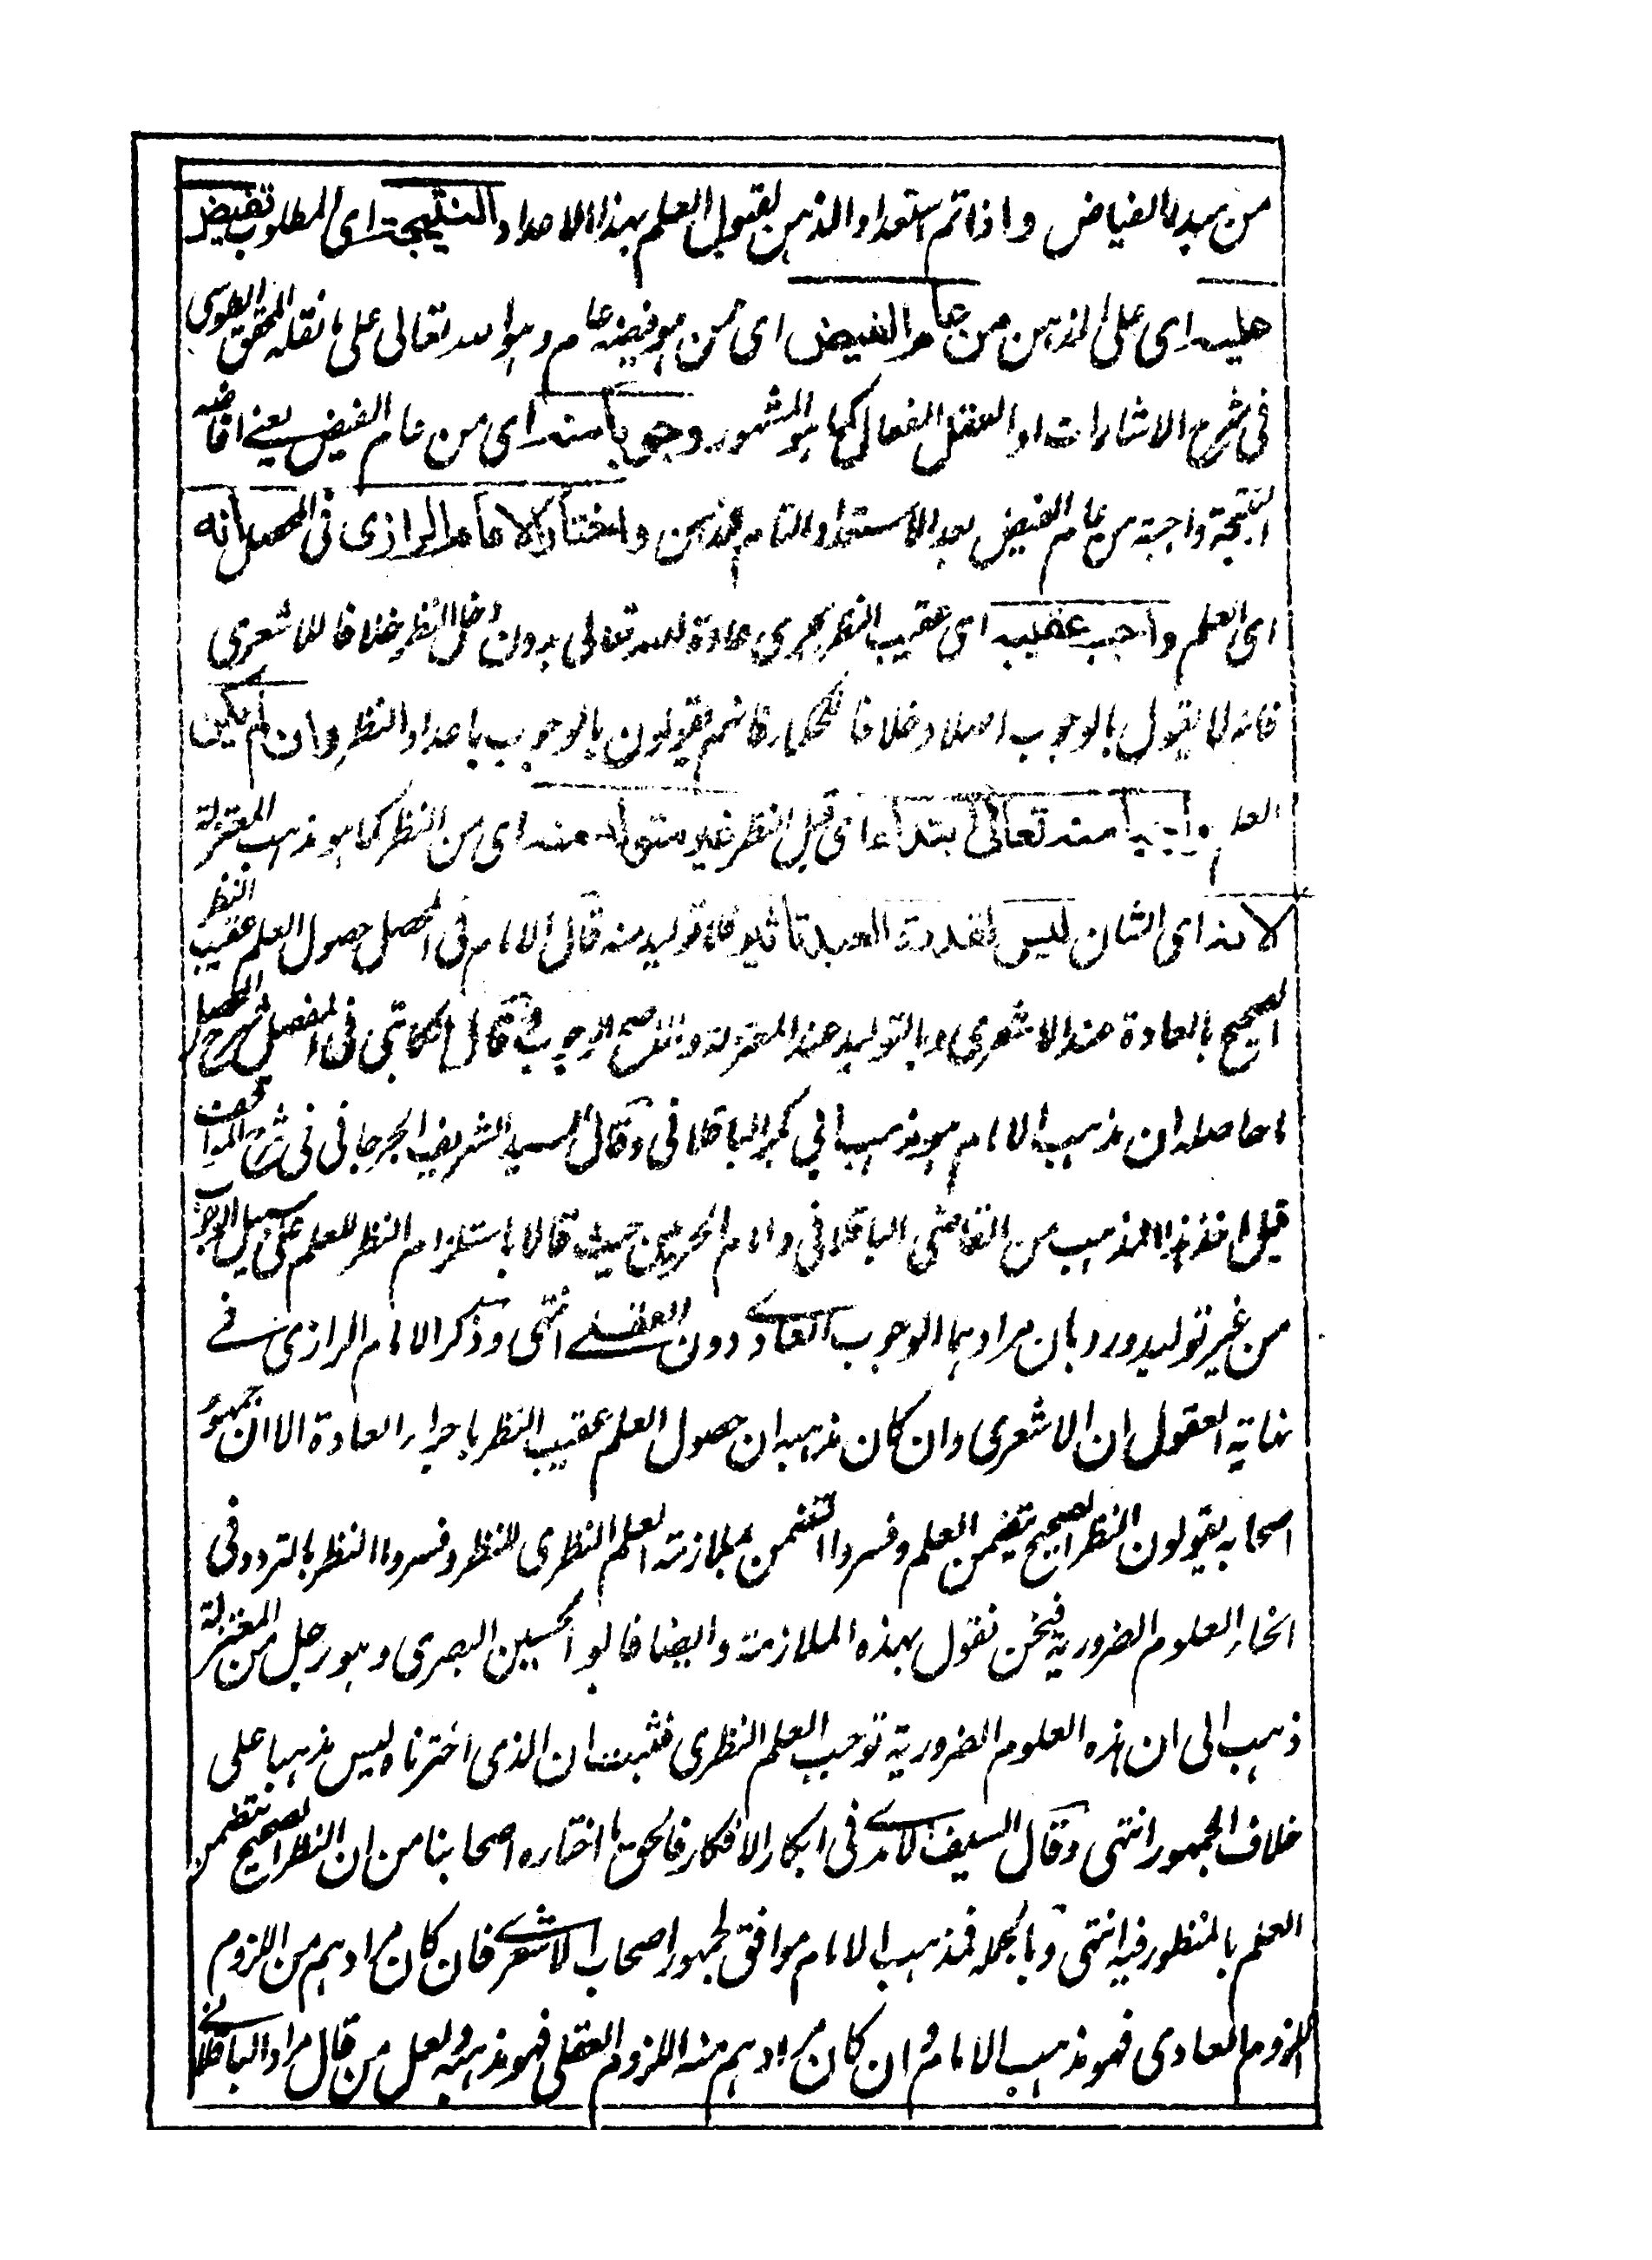 من مبدء الفياض واذا تم استعداد الذهن لقبول العلم بهذا الاعداد النتيجة اى المطلوب تفيض
عليه اى على الذهن من عام الفيض اى من هو فيضه عام وهو الله تعالى على ما نقله المحقق الطوسى
فى شرح الاشارات او العقل الفعال كما هو المشهور وجوبا منه اى من عام الفيض يعنے افاضة
النتيجة واجبة من عام الفيض بعد الاستعداد التام للذهن واختار الامام الرازى فى المحصل انه
اى العلم واجب عقيبه اى عقيب النظر بجرى عادة الله تعالى بدون دخل النظر خلافا للاشعرى
فانه لا يقول بالوجوب اصلا وخلافا للحكماء فانهم يقولون بالوجوب باعداد النظر وان لم يكن
العلم واجبا منه تعالى ابتداء اى قبل النظر غير متولد منه اى من النظر كما هو مذهب المعتزلة
لانه اى الشان ليس لقدرة العبد تاثير فلا توليد منه قال الامام فى المحصل حصول العلم عقيب النظر
الصحيح بالعادة عند الاشعرى وبالتوليد عند المعتزلة والاصح الوجوب وقال الكاتبى فى المفصل شرح المحصل
ما حاصله ان مذهب الامام هو مذهب ابى بكر الباقلانى وقال السيد الشريف الجرجانى فى شرح المواقف
قيل اخذ هذا المذهب من القاضى الباقلانى وامام الحرمين حيث قالا باستلزام النظر للعلم على سبيل الوجوب
من غير توليد ورد بان مرادهما الوجوب العادے دون العقلے انتهى وذكر الامام الرازى فے
نهاية العقول ان الاشعرى وان كان مذهبه ان حصول العلم عقيب النظر باجراء العادة الا ان جمهور
اصحابه يقولون النظر الصحيح يتضمن العلم وفسروا التضمن بملازمة العلم النظرى للنظر وفسروا النظر بالتردد فى
انحاء العلوم الضرورية فنحن نقول بهذه الملازمة وايضا فابو الحسين البصرى وهو رجل من المعتزلة
ذهب الى ان هذه العلوم الضرورية توجب العلم النظرى فثبت ان الذى اخترناه ليس مذهبا على
خلاف الجمهور انتهى وقال السيف الآمدے فى ابكار الافكار فالحق ما اختاره اصحابنا من ان النظر الصحيح يتضمن
العلم بالمنظور فيه انتهى وبالجملة فمذهب الامام موافق لجمهور اصحاب الاشعرے فان كان مرادهم من اللزوم
اللزوم العادى فهو مذهب الامام وان كان مرادهم منه اللزوم العقلى فهو مذهبه ولعل من قال مراد الباقلانے